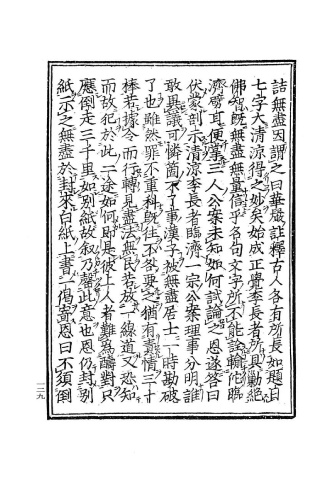 詰無盡因謂之曰華嚴註釋古人各有所長如題目
七字大清涼得之妙矣始成正覺李長者所具勦絕
佛智既無盡無量信乎名句文字所不能詮喻佗臨
濟劈耳便掌三人公案未知如何試論之恩遂答曰
伏蒙剖示清涼李長者臨濟一宗公案理事分明誰
敢異議可憐箇不了事漢子被無盡居士一時勘破
了也雖然罪不重科既往不咎要之猶有責情三十
棒若據令而行轉見盡法無民若放一線道又恐知
而故犯於此二途如何即是彼上人者難為酬對只
應倒走三千里如別紙故叙乃罄此意也恩仍封別
紙示之無盡於封來白紙上書一偈寄恩曰不須倒
一二九